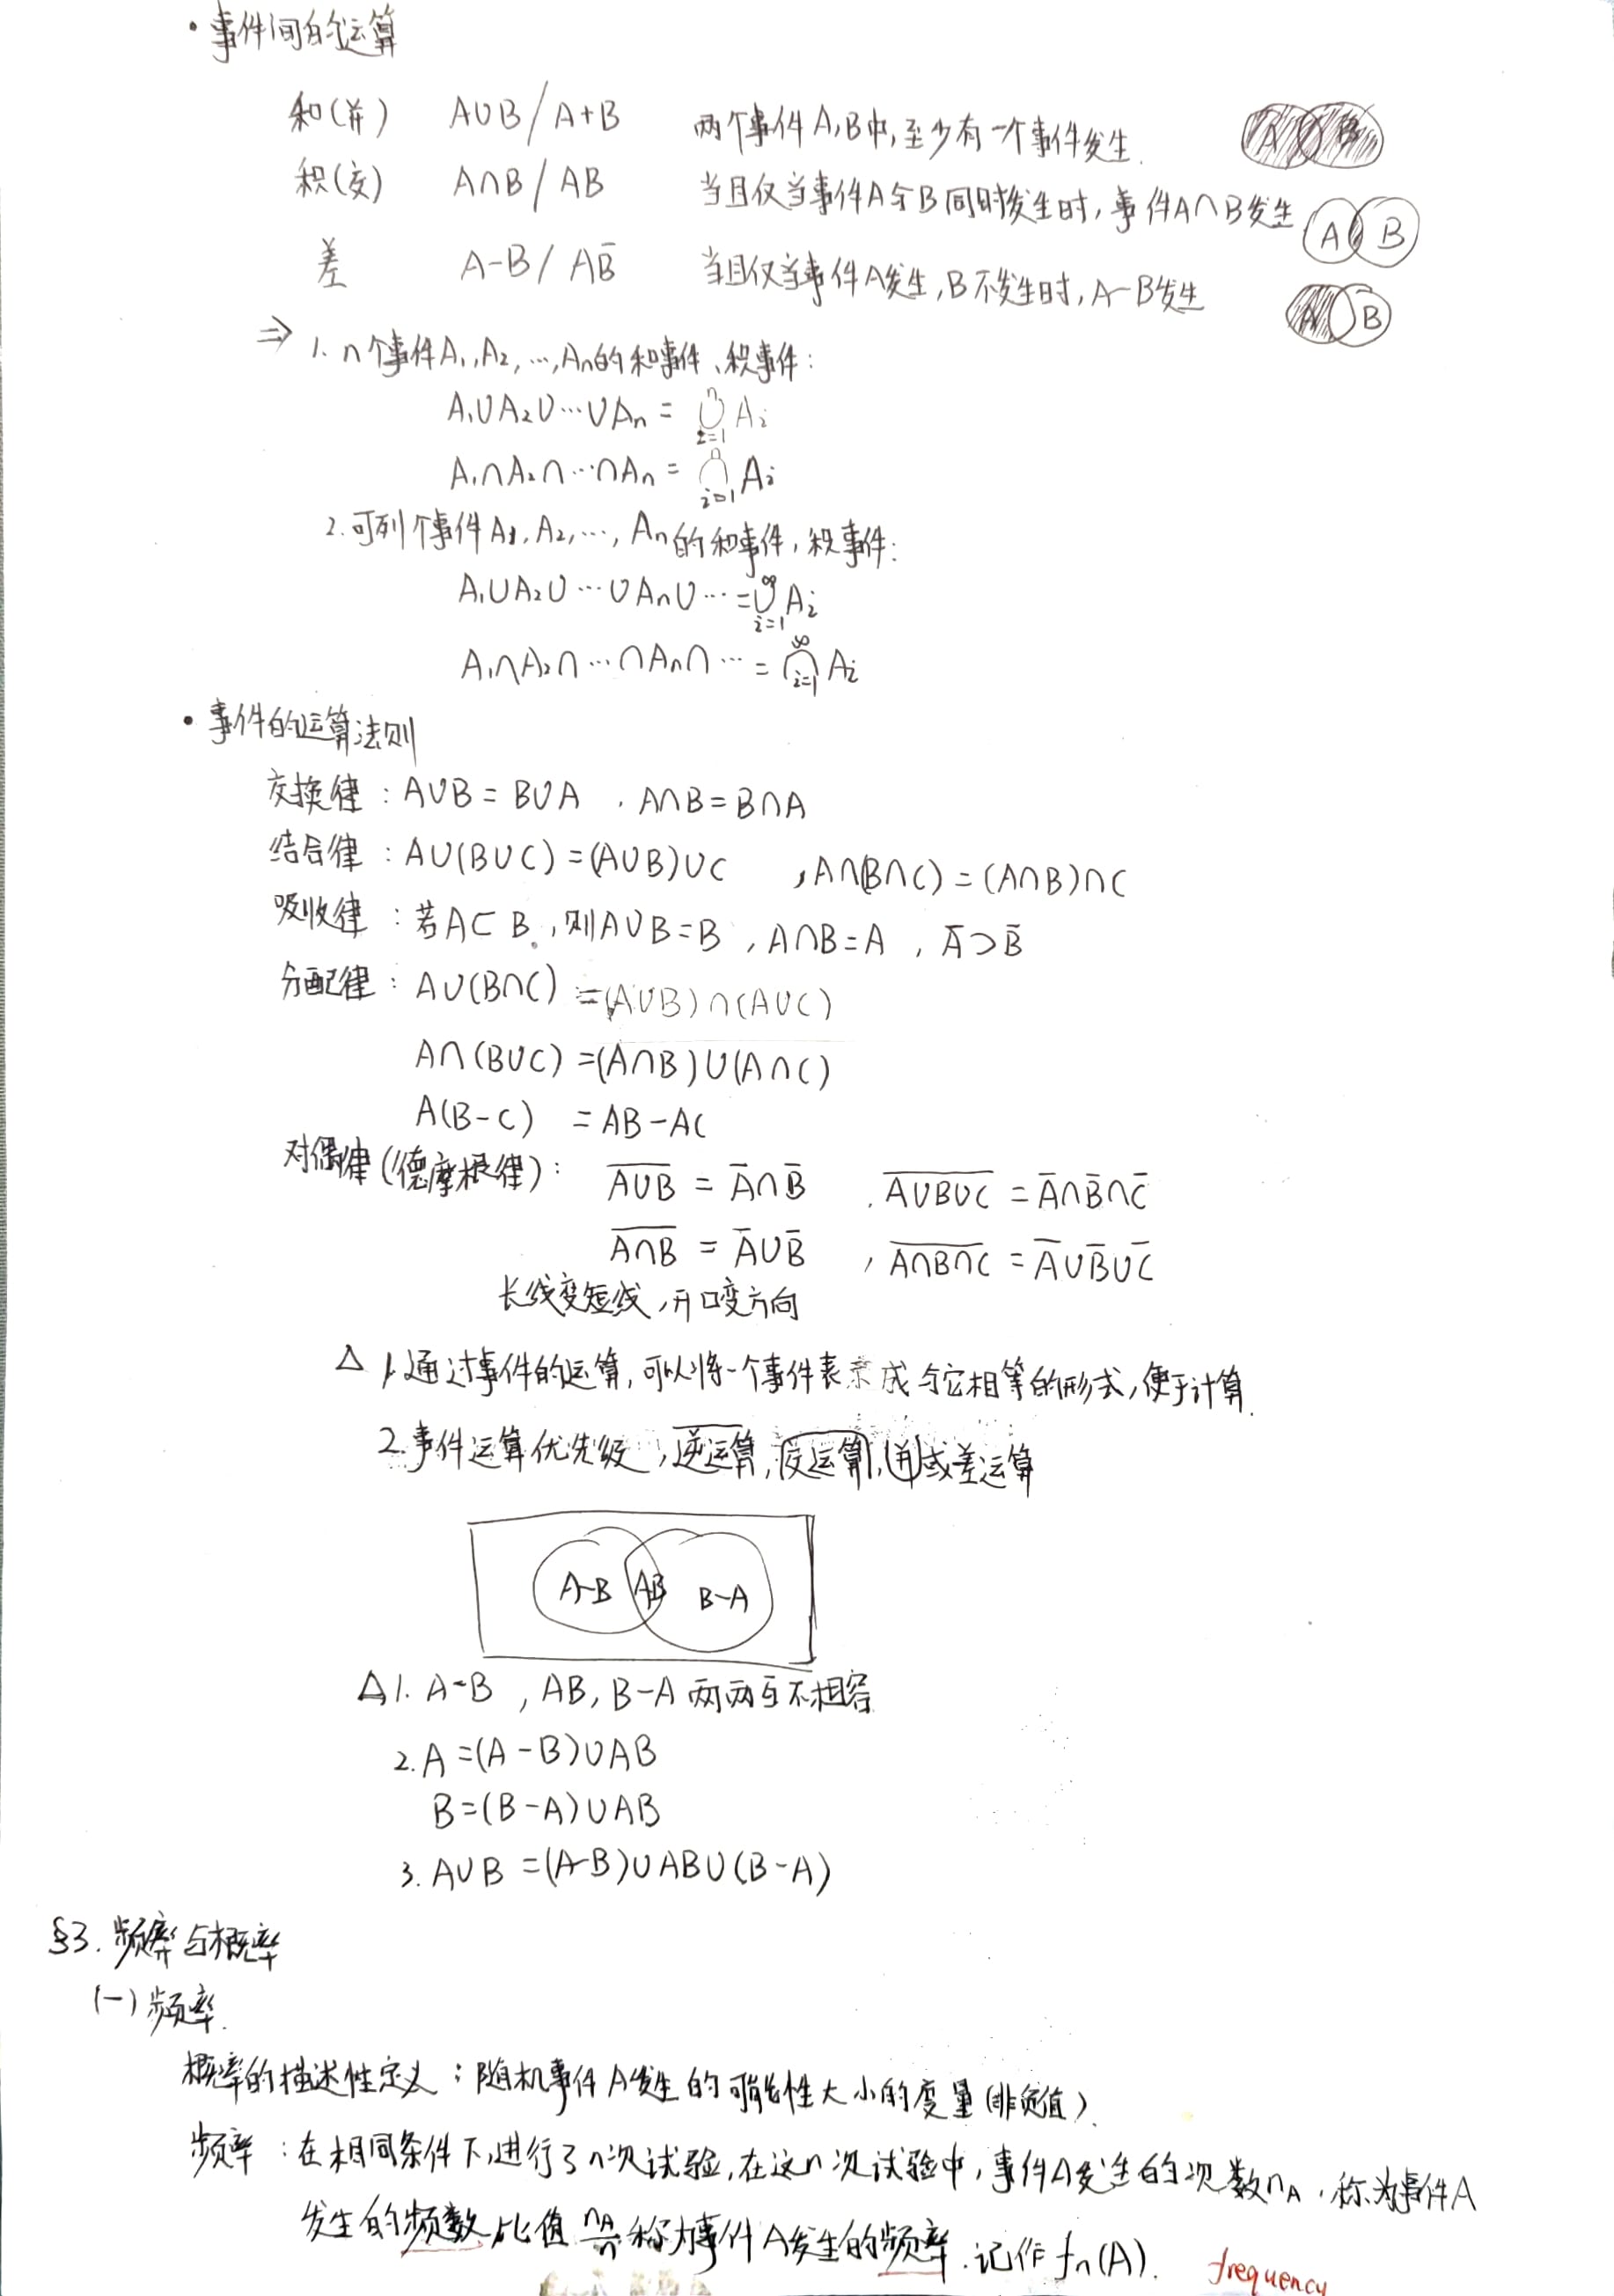 • 事件间的运算
和(并) A∪B / A+B 两个事件A,B中,至少有一个事件发生.
A B
积(交) A∩B / AB 当且仅当事件A与B同时发生时,事件A∩B发生
A B
差 A-B / AB̄ 当且仅当事件A发生,B不发生时,A-B发生
A B
⇒ 1. n个事件A₁,A₂,…,Aₙ的和事件、积事件:
A₁∪A₂∪…∪Aₙ = ⋃ⁿᵢ₌₁ Aᵢ
A₁∩A₂∩…∩Aₙ = ⋂ⁿᵢ₌₁ Aᵢ
2. 可列个事件A₁,A₂,…,Aₙ的和事件,积事件:
A₁∪A₂∪…∪Aₙ∪… = ⋃^∞ᵢ₌₁ Aᵢ
A₁∩A₂∩…∩Aₙ∩… = ⋂^∞ᵢ₌₁ Aᵢ
• 事件的运算法则
交换律: A∪B = B∪A , A∩B = B∩A
结合律: A∪(B∪C) = (A∪B)∪C , A∩(B∩C) = (A∩B)∩C
吸收律: 若A⊂B, 则A∪B=B , A∩B=A , Ā⊃B̄
分配律: A∪(B∩C) = (A∪B)∩(A∪C)
A∩(B∪C) = (A∩B)∪(A∩C)
A(B-C) = AB-AC
对偶律(德摩根律): \overline{A∪B} = Ā∩B̄ , \overline{A∪B∪C} = Ā∩B̄∩C̄
\overline{A∩B} = Ā∪B̄ , \overline{A∩B∩C} = Ā∪B̄∪C̄
长线变短线,开口变方向
△ 1. 通过事件的运算,可以将一个事件表示成与它相等的形式,便于计算.
2. 事件运算优先级,逆运算,运算,并或差运算
A-B AB B-A
△ 1. A-B , AB, B-A 两两互不相容
2. A = (A-B)∪AB
B = (B-A)∪AB
3. A∪B = (A-B)∪AB∪(B-A)
§3. 频率与概率
(一) 频率.
概率的描述性定义: 随机事件A发生的可能性大小的度量(非定值).
频率: 在相同条件下,进行了n次试验,在这n次试验中,事件A发生的次数n_A,称为事件A
发生的频数,比值 n_A/n 称为事件A发生的频率.记作fₙ(A).
frequency